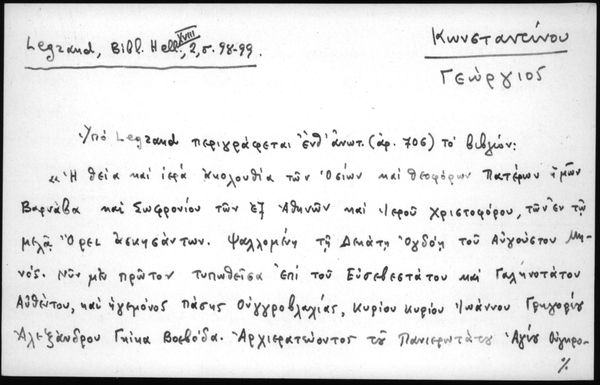 Legrand, Bibl. Hell. XVIII, 2, σ. 98-99.
Κωνσταντίνου
Γεώργιος
Ὑπό Legrand περιγράφεται ἐνθ' ἀνωτ. (ἀρ. 706) τό βιβλίον:
« Ἡ θεία καί ἱερά ἀκολουθία τῶν Ὁσίων καί θεοφόρων Πατέρων ἡμῶν
Βαρνάβα καί Σωφρονίου τῶν ἐξ Ἀθηνῶν καί Ἱεροῦ Χριστοφόρου, τῶν ἐν τῷ
μελᾷ Ὄρει ἀσκησάντων. Ψαλλομένη τῇ Δεκάτῃ Ὀγδόῃ τοῦ Αὐγούστου Μη-
νός. Νῦν μέν πρῶτον τυπωθεῖσα ἐπί τοῦ Εὐσεβεστάτου καί Γαληνοτάτου
Αὐθέντου, καί ἡγεμόνος πάσης Οὐγγροβλαχίας, Κυρίου Κυρίου Ἰωάννου Γρηγορίου
Ἀλεξάνδρου Γκίκα Βοεβόδα. Ἀρχιερατεύοντος τοῦ Πανιερωτάτου Ἁγίου Οὐγκρο-
%